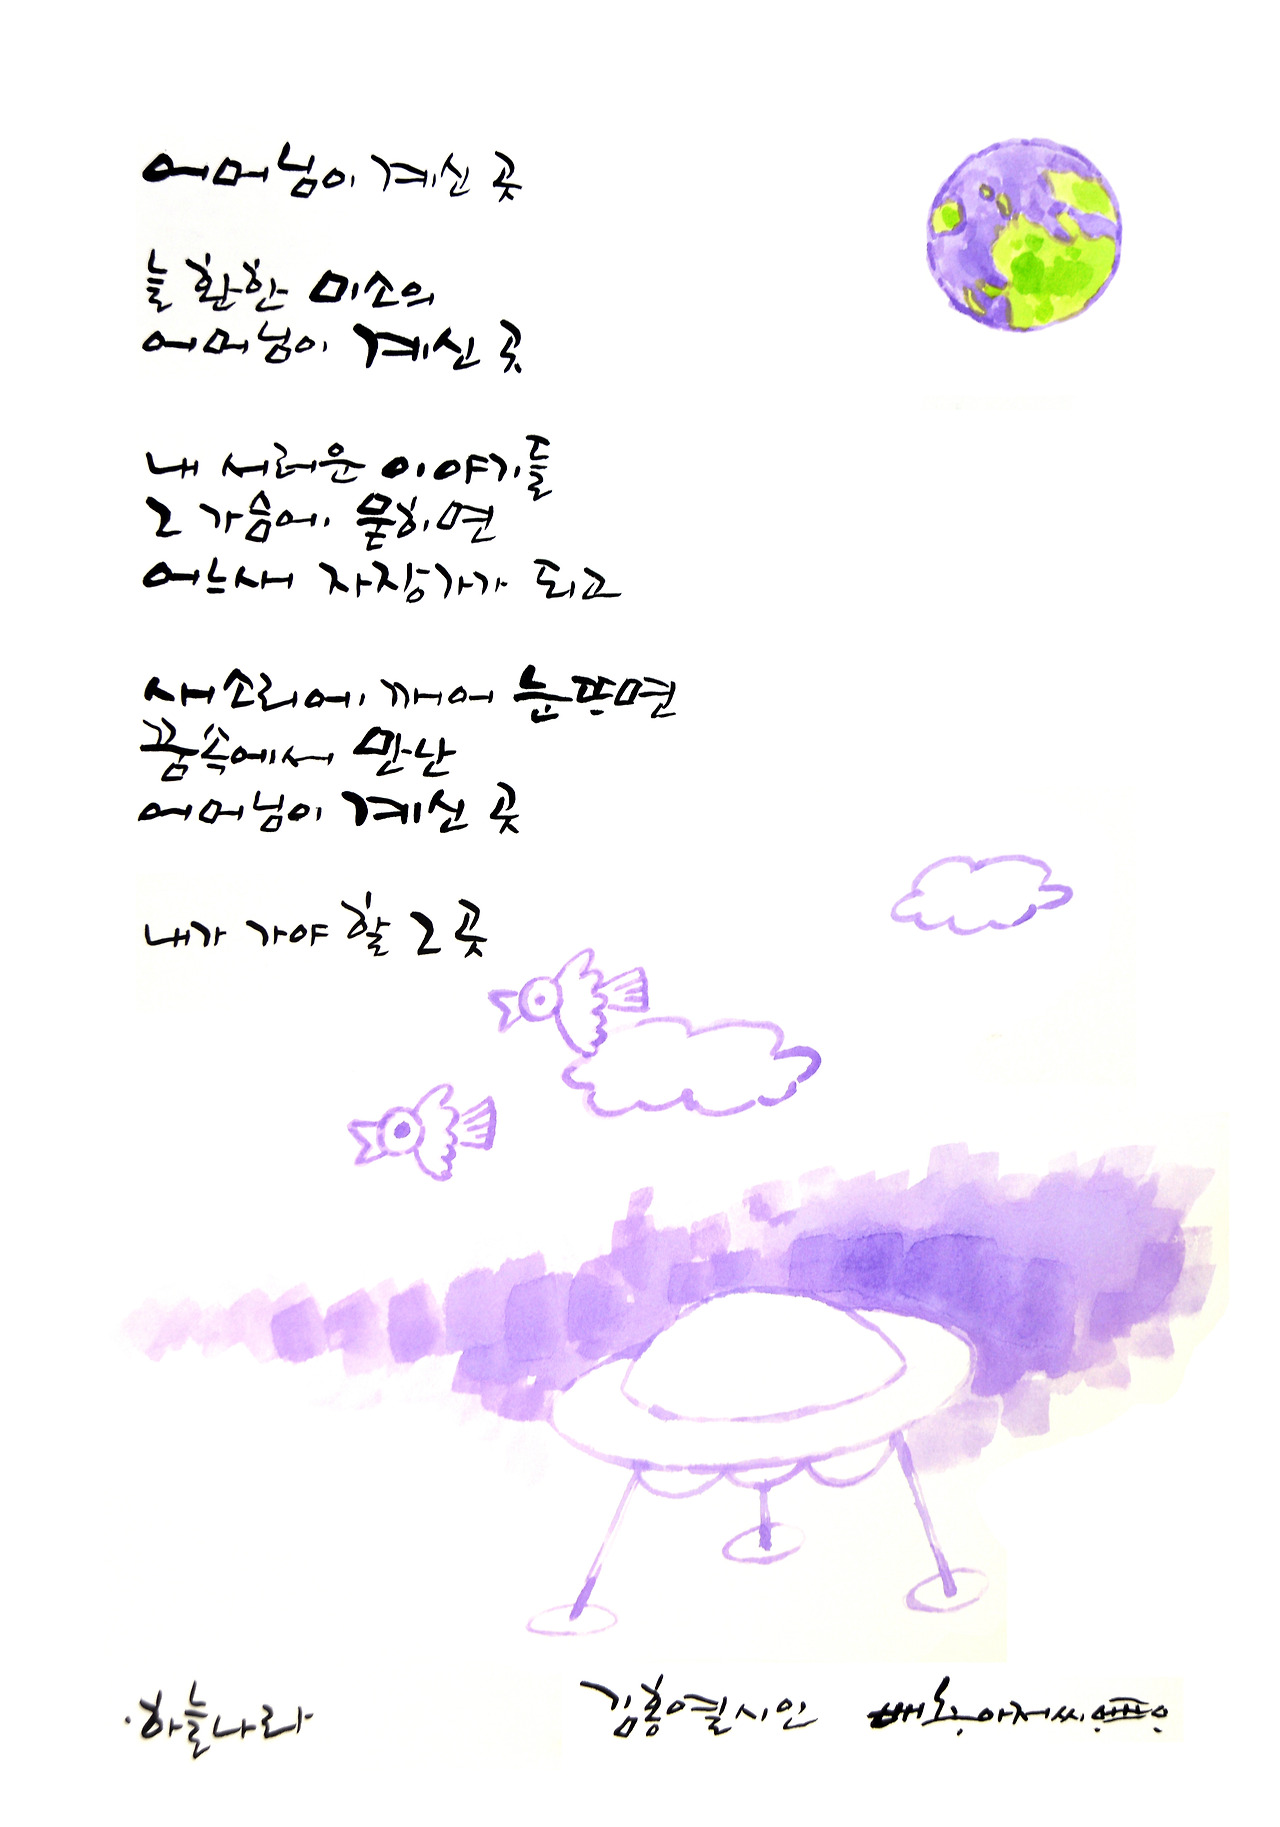 어머님이 계신 곳
늘 환한 미소의
어머님이 계신 곳
내 서러운 이야기들
그 가슴에 묻히면
어느새 자장가가 되고
새소리에 깨어 눈뜨면
꿈속에서 만난
어머님이 계신 곳
내가 가야 할 그 곳
·하늘나라
김홍열시인